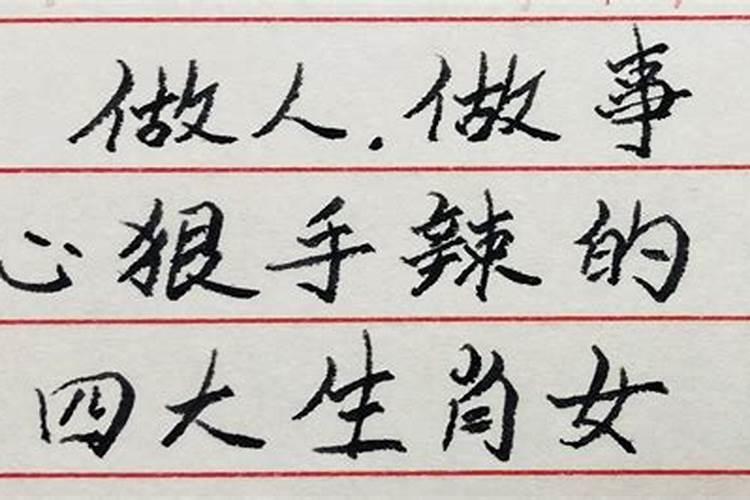 做人.做事
心狠手辣的
四大生肖女